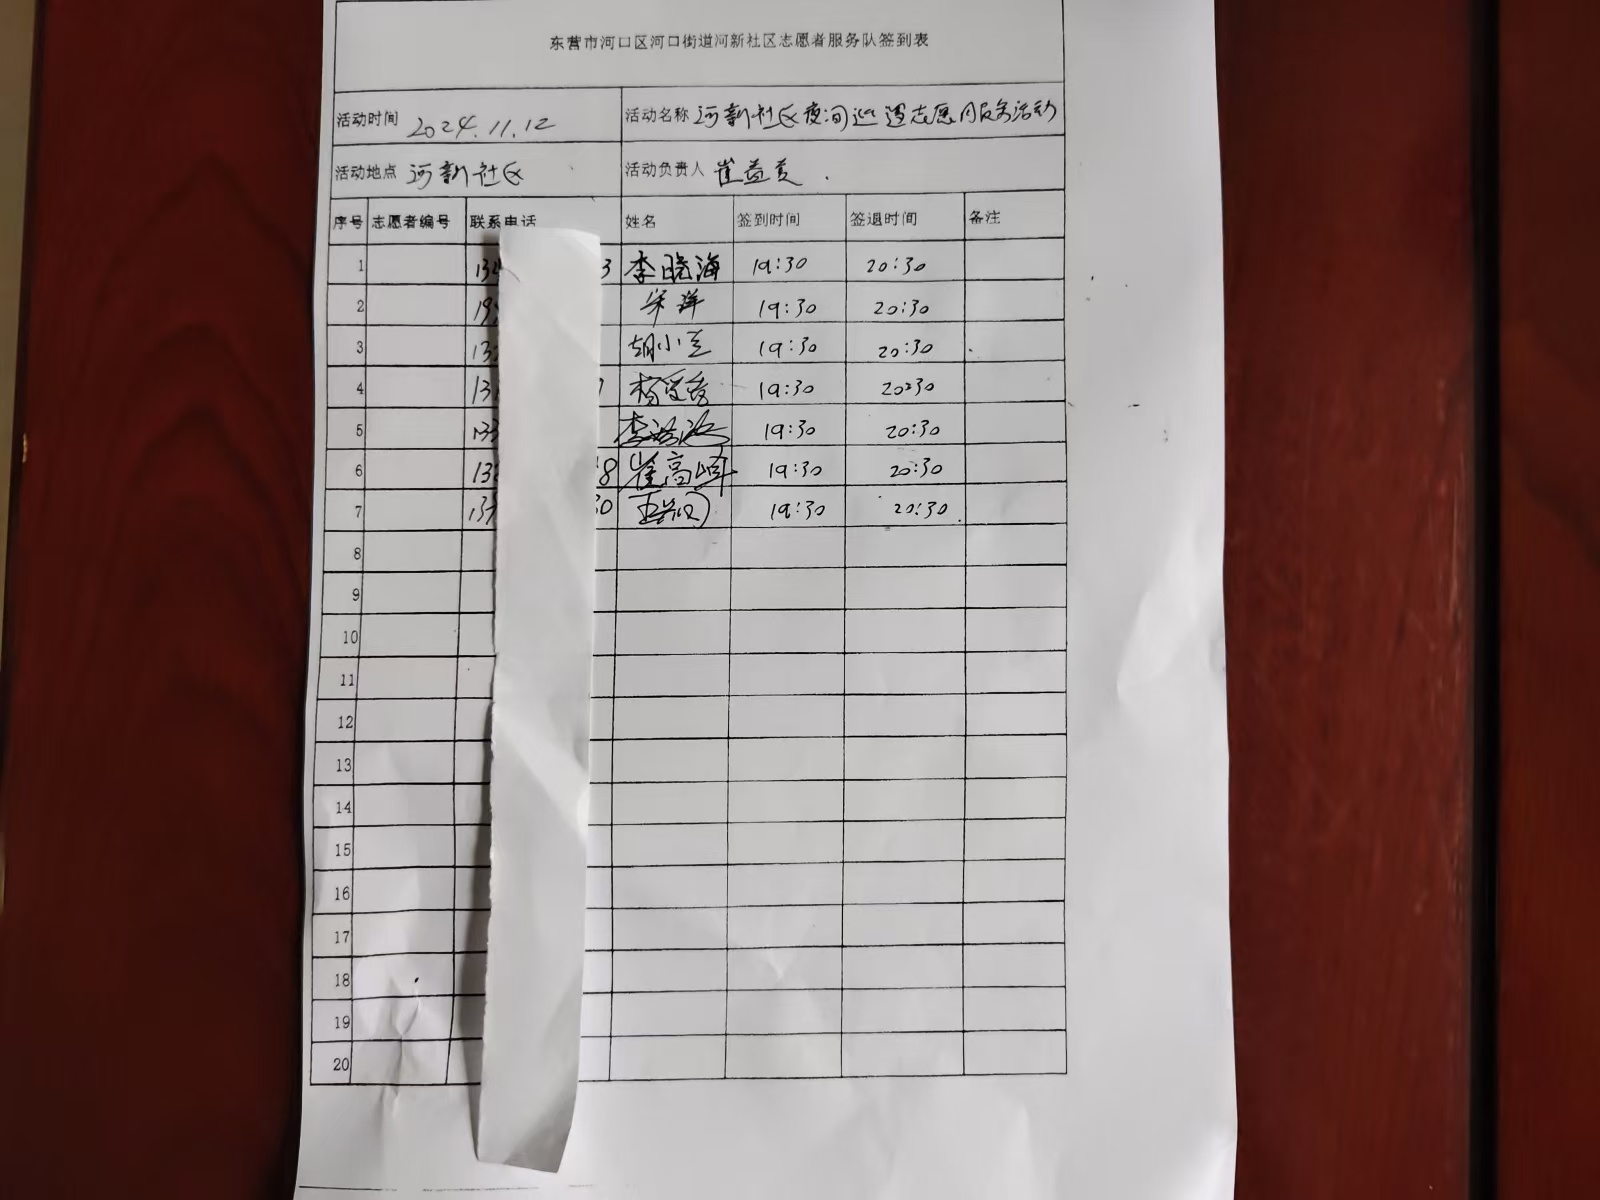 东营市河口区河口街道河新社区志愿者服务队签到表
活动时间 2024.11.12 活动名称 河新社区夜间巡逻志愿服务活动
活动地点 河新社区 活动负责人 崔益
序号 志愿者编号 联系电话 姓名 签到时间 签退时间 备注
1 134 3 李晓海 19:30 20:30
2 19 宋洋 19:30 20:30
3 13 胡小 19:30 20:30
4 13 杨 19:30 20:30
5 133 李 19:30 20:30
6 13 8 崔高峰 19:30 20:30
7 13 30 19:30 20:30
8
9
10
11
12
13
14
15
16
17
18
19
20